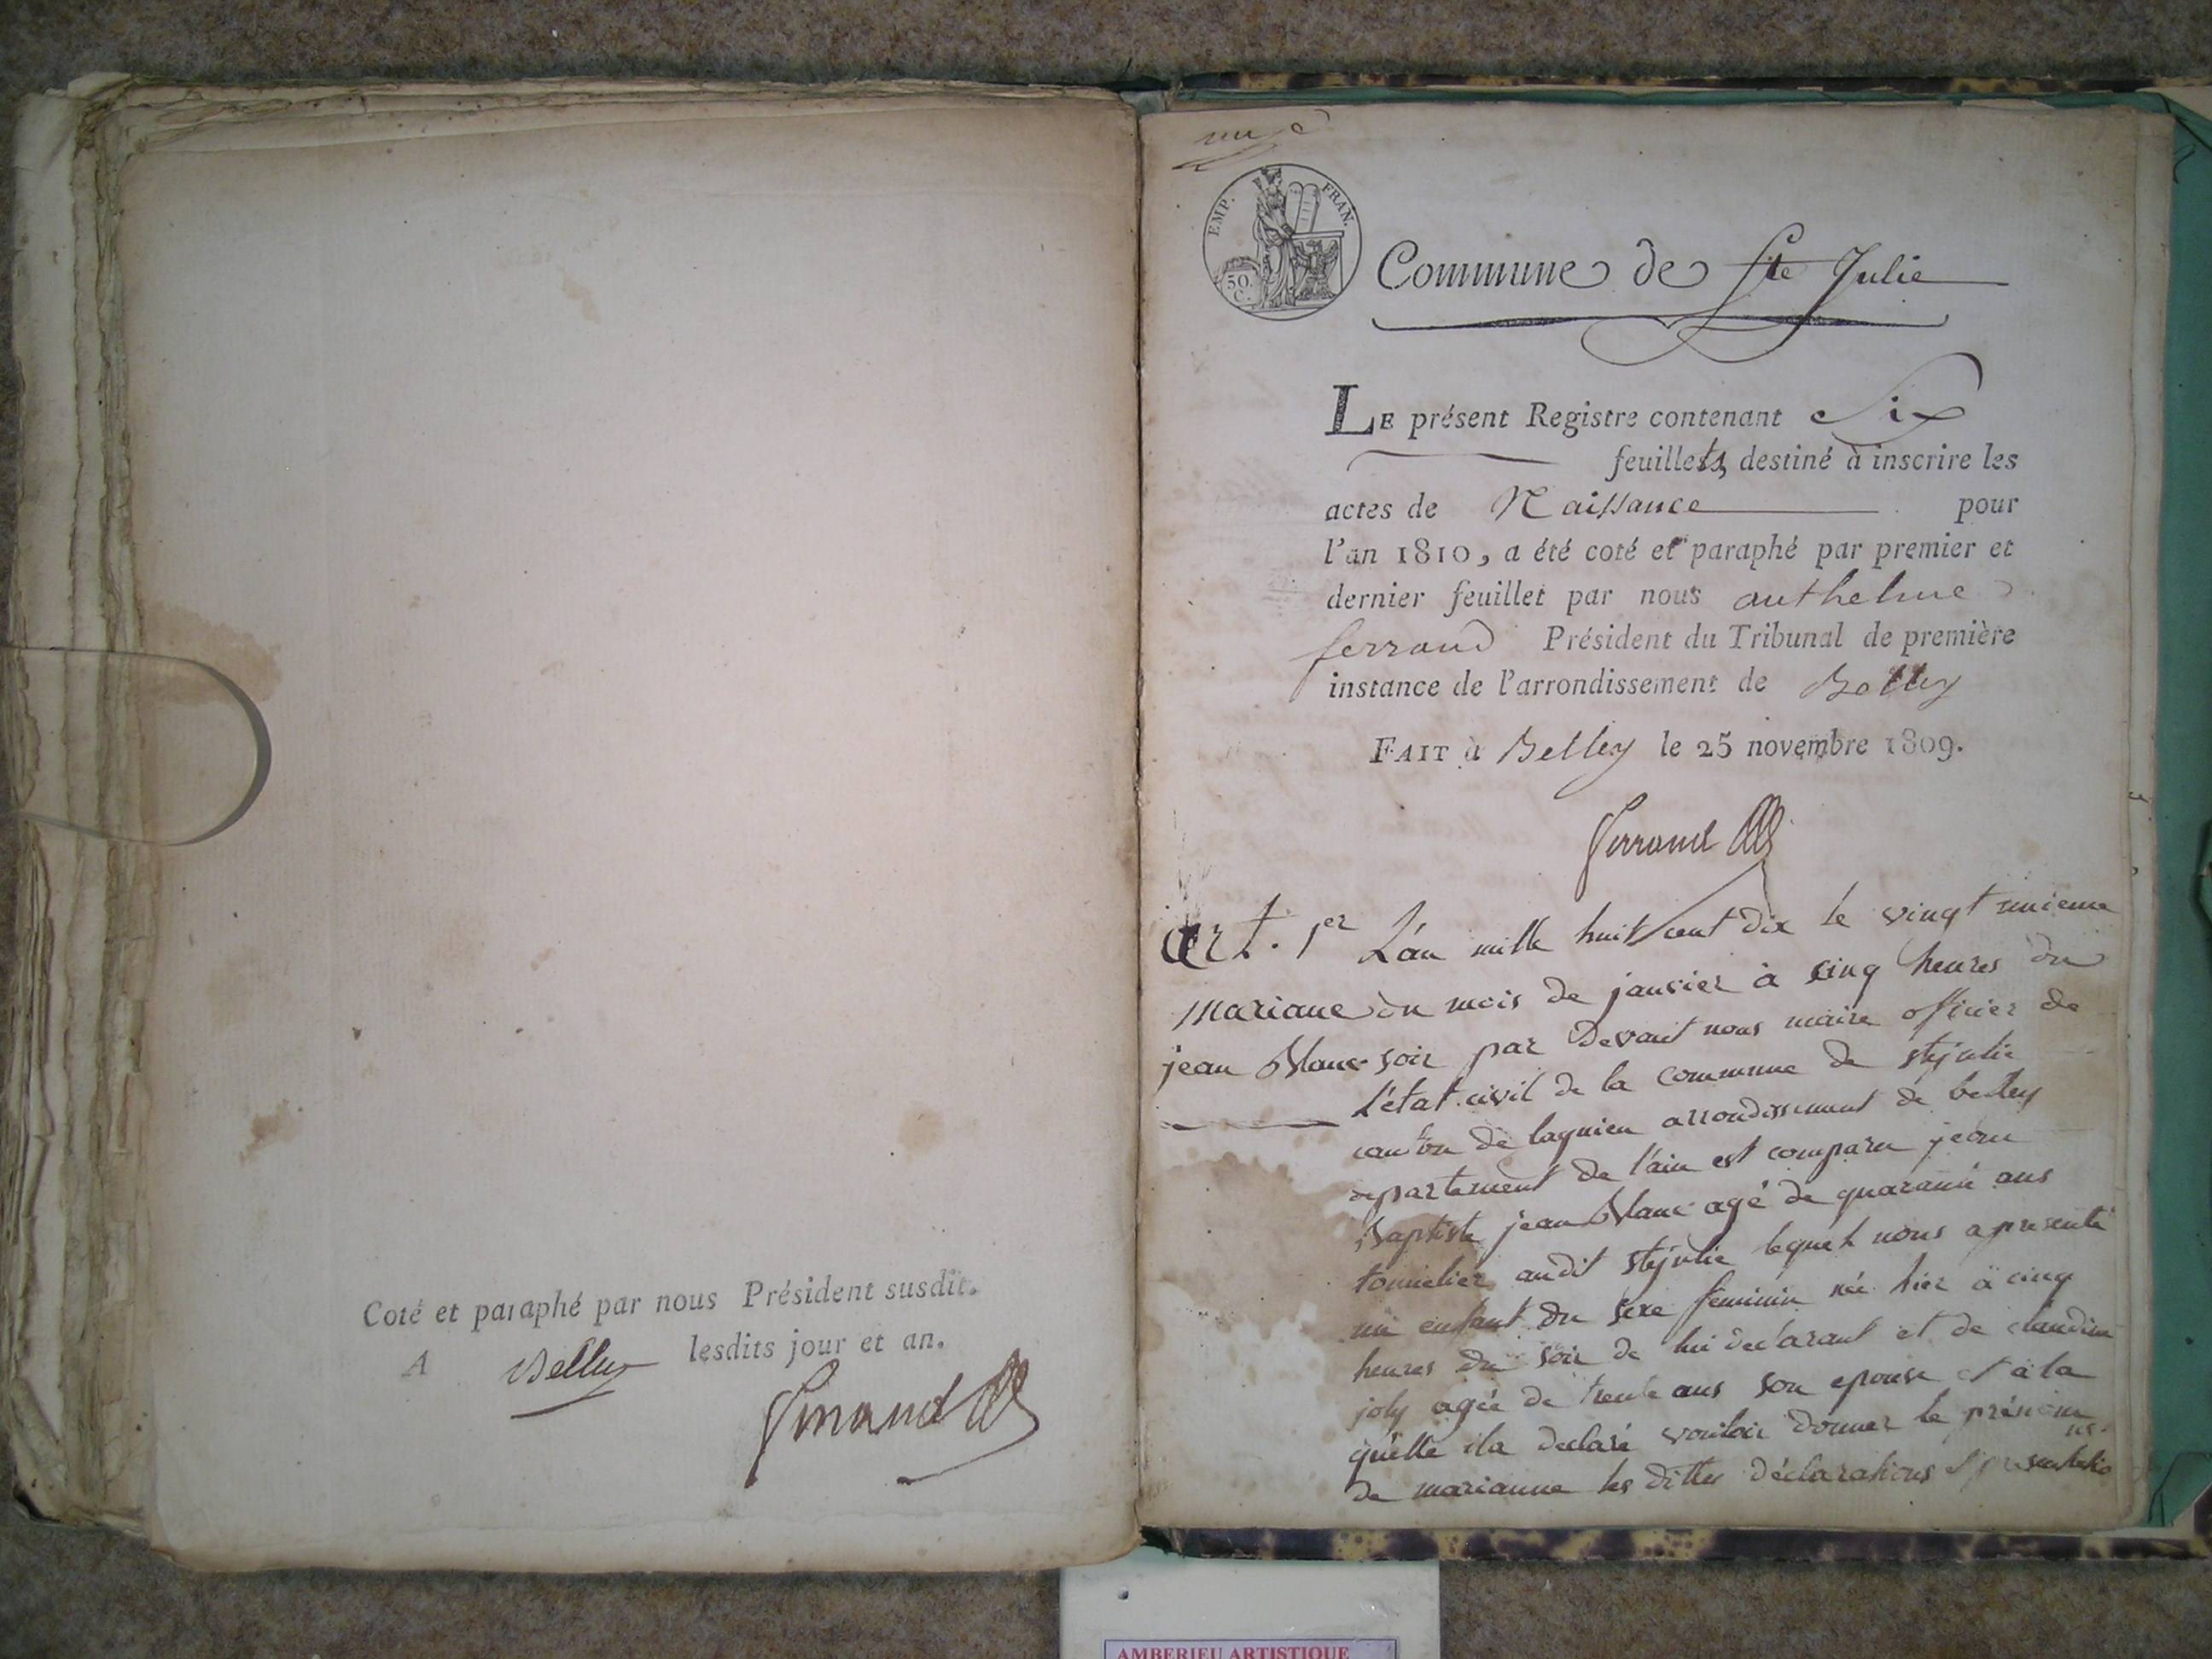 Coté et paraphé par nous Président susdit.
A Belley lesdits jour et an.
Ferrand
EMP. FRAN.
50. C.
Commune de Ste Julie
LE présent Registre contenant Six
feuillets, destiné à inscrire les
actes de Naissance pour
l'an 1810, a été coté et paraphé par premier et
dernier feuillet par nous anthelme
ferrand Président du Tribunal de première
instance de l'arrondissement de Belley
FAIT à Belley le 25 novembre 1809.
Ferrand
Art. 1er L'an mille huit cent dix le vingt unieme
Mariane du mois de janvier à cinq heures du
jean Blanc soir par Devant nous maire officier de
L'état civil de la commune de stejulie
canton de lagnieu arrondissement de belley
departement de l'ain est comparu jean
Baptiste jean Blanc agé de quarante ans
tonnelier audit stejulie lequel nous a presenté
un enfant du sexe feminin née hier à cinq
heures du soir de lui declarant et de claudine
joly agée de trente ans son epouse et à la
quelle il a declaré vouloir donner le prénom
de marianne les dittes déclarations et presentatio
ns.
AMBERIEU ARTISTIQUE